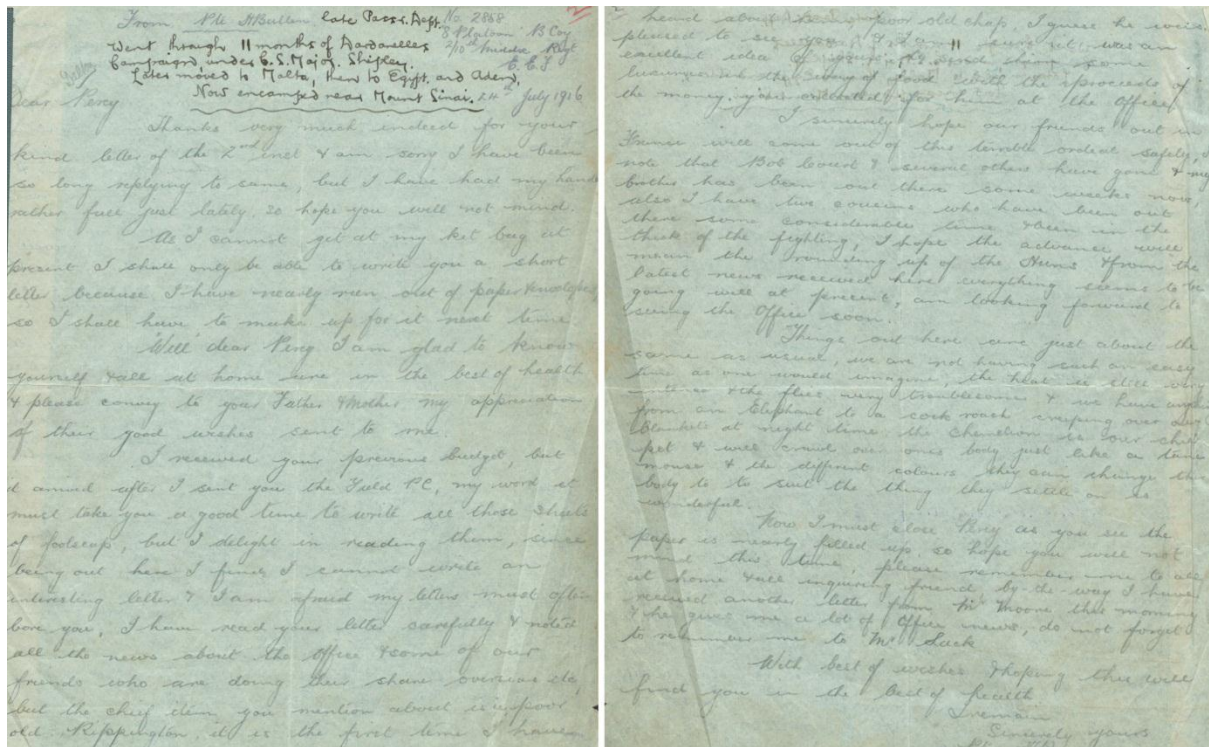 From Pte H Bullen late Passr. Dept.
No. 2858
8 Platoon B Coy
2/10th Middx Regt
E.E.F.
Went through 11 months of Dardanelles
Campaign, under C.S. Major. Shipley.
Later moved to Malta, then to Egypt, and Aden,
Now encamped near Mount Sinai.
24th July 1916
Dear Percy
Thanks very much indeed for your
kind letter of the 2nd inst & am sorry I have been
so long replying to same, but I have had my hands
rather full just lately, so hope you will not mind.
As I cannot get at my kit bag at
present I shall only be able to write you a short
letter because I have nearly run out of paper & envelopes,
so I shall have to make up for it next time
Well dear Percy I am glad to know
yourself & all at home are in the best of health
& please convey to your Father & Mother my appreciation
of their good wishes sent to me.
I received your previous budget, but
it arrived after I sent you the Field PC, my word it
must take you a good time to write all those sheets
of foolscap, but I delight in reading them, since
being out here I find I cannot write an
interesting letter & I am afraid my letters must often
bore you, I have read your letter carefully & noted
all the news about the office & some of our
friends who are doing their share overseas etc,
but the chief item you mention about is poor
old Rippington, it is the first time I have
2
heard about poor old chap, I guess he was
pleased to see you & I am sure it was an
excellent idea of yours to send him some
luxuries in the way of food with the proceeds of
the money you collected for him at the Office
I sincerely hope our friends out in
France will come out of this terrible ordeal safely, I
note that Bob & several others have gone & my
brother has been out there some weeks now,
also I have two cousins who have been out
there some considerable time & been in the
thick of the fighting, I hope the advance will
mean the rounding up of the Huns & from the
latest news received here everything seems to be
going well at present, am looking forward to
seeing the Office soon.
Things out here are just about the
same as usual, we are not having such an easy
time as one would imagine, the heat is still very
& the flies very troublesome & we have
from an Elephant to a cock roach creeping over our
blankets at night time the chameleon is our chief
pet & will crawl over ones body just like a tame
mouse & the different colours they can change their
body to to suit the thing they settle on is
wonderful.
Now I must close Percy as you see the
paper is nearly filled up, so hope you will not
mind this time, please remember me to all
at home & all inquiring friend by the way I have
received another letter from Mr Moore this morning
& he gives me a lot of Office news, do not forget
to remember me to Mr Luck
With best of wishes & hoping this will
find you in the best of health
I remain
Sincerely yours